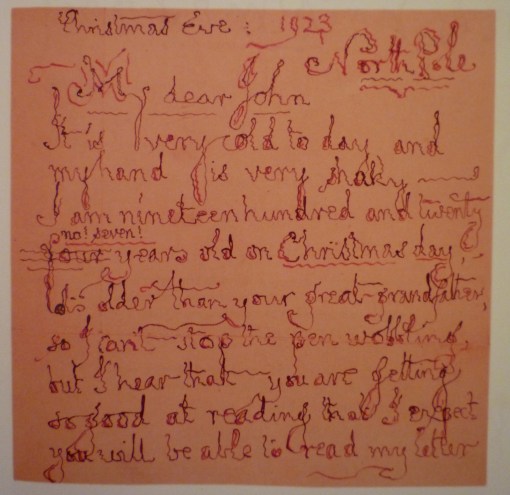 Christmas Eve: 1923
North Pole
My dear John
It is very cold to day and
my hand is very shaky —
I am nineteen hundred and twenty
no! seven!
four years old on Christmas day,
lots older than your great-grandfather,
so I can't stop the pen wobbling,
but I hear that you are getting
so good at reading that I expect
you will be able to read my letter